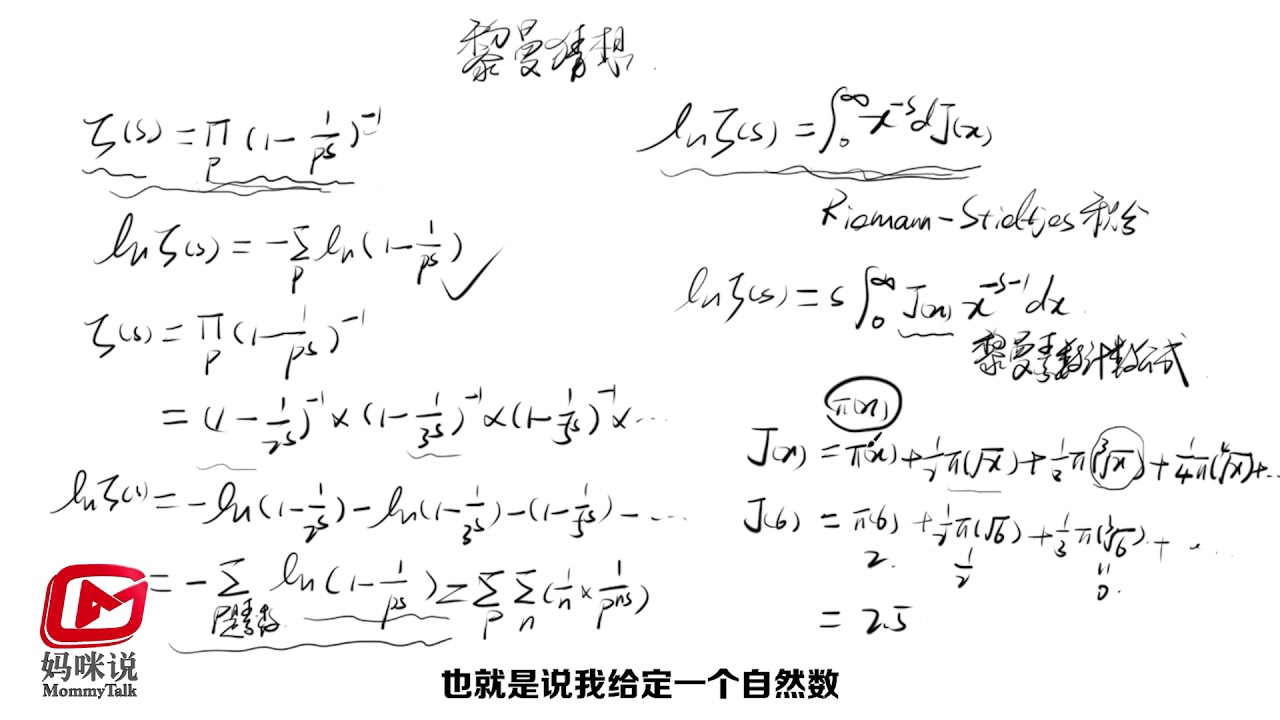 黎曼猜想
ζ(s) = ∏_p (1 - 1/p^s)^{-1}
ln ζ(s) = -∑_p ln(1 - 1/p^s) ✓
ζ(s) = ∏_p (1 - 1/p^s)^{-1}
= (1 - 1/2^s)^{-1} × (1 - 1/3^s)^{-1} × (1 - 1/5^s)^{-1} × ...
ln ζ(s) = -ln(1 - 1/2^s) - ln(1 - 1/3^s) - (1 - 1/5^s) - ...
= -∑_{P是素数} ln(1 - 1/p^s) = ∑_p ∑_n (1/n × 1/p^{ns})
ln ζ(s) = ∫_0^∞ x^{-s} dJ(x)
Riemann-Stieltjes 积分
ln ζ(s) = s ∫_0^∞ J(x) x^{-s-1} dx
黎曼素数计数公式
π(x)
J(x) = π(x) + 1/2 π(√x) + 1/3 π(∛x) + 1/4 π(∜x) + ...
J(6) = π(6) + 1/2 π(√6) + 1/3 π(∛6) + ...
2 1/2 0
= 2.5
妈咪说
MommyTalk
也就是说我给定一个自然数